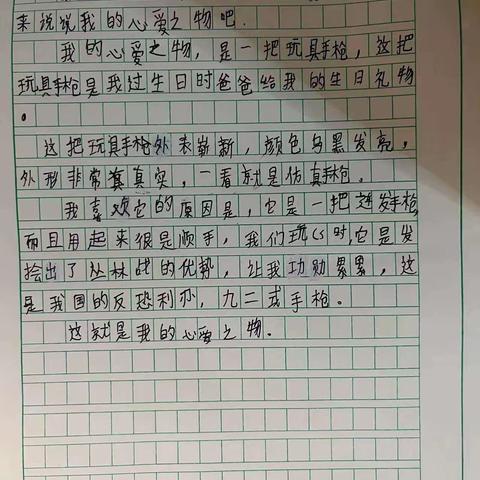 来说说我的心爱之物吧.
我的心爱之物，是一把玩具手枪，这把
玩具手枪是我过生日时爸爸给我的生日礼物
。
这把玩具手枪外表崭新，颜色乌黑发亮，
外形非常真实，一看就是仿真手枪。
我喜欢它的原因是，它是一把连发手枪，
而且用起来很是顺手，我们玩CS时，它是发
挥出了丛林战的优势，让我功勋累累，这
是我国的反恐利刃，九二式手枪。
这就是我的心爱之物.